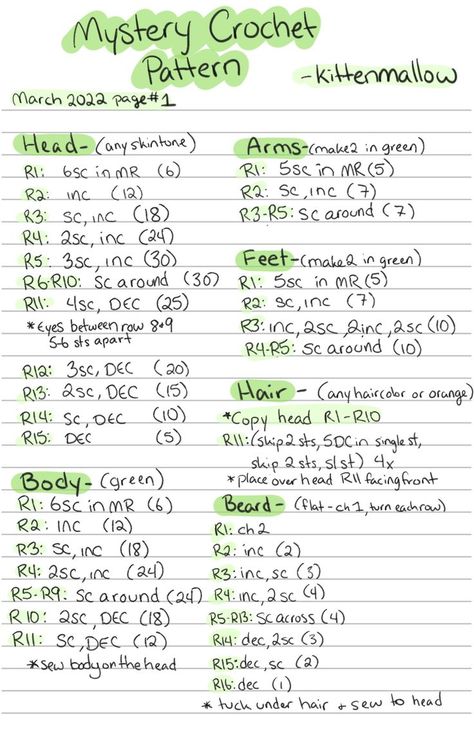 Mystery Crochet
Pattern
-kittenmallow
March 2022 page#1
Head- (any skintone)
R1: 6sc in MR (6)
R2: inc (12)
R3: SC, inc (18)
R4: 2sc, inc (24)
R5: 3sc, inc (30)
R6-R10: SC around (30)
R11: 4sc, DEC (25)
*Eyes between row 8+9
5-6 sts apart
R12: 3sc, DEC (20)
R13: 2sc, DEC (15)
R14: SC, DEC (10)
R15: DEC (5)
Body- (green)
R1: 6sc in MR (6)
R2: INC (12)
R3: SC, inc (18)
R4: 2sc, inc (24)
R5-R9: SC around (24)
R10: 2sc, DEC (18)
R11: SC, DEC (12)
*sew body on the head
Arms- (make 2 in green)
R1: 5sc in MR (5)
R2: SC, inc (7)
R3-R5: SC around (7)
Feet- (make 2 in green)
R1: 5sc in MR (5)
R2: SC, inc (7)
R3: inc, 2sc, 2inc, 2sc (10)
R4-R5: SC around (10)
Hair- (any haircolor or orange)
*Copy head R1-R10
R11: (skip 2 sts, 5DC in single st,
skip 2 sts, sl st) 4x
*place over head R11 facing front
Beard- (flat-ch1, turn each row)
R1: ch2
R2: inc (2)
R3: inc, sc (3)
R4: inc, 2sc (4)
R5-R13: SC across (4)
R14: dec, 2sc (3)
R15: dec, sc (2)
R16: dec (1)
* tuck under hair + sew to head